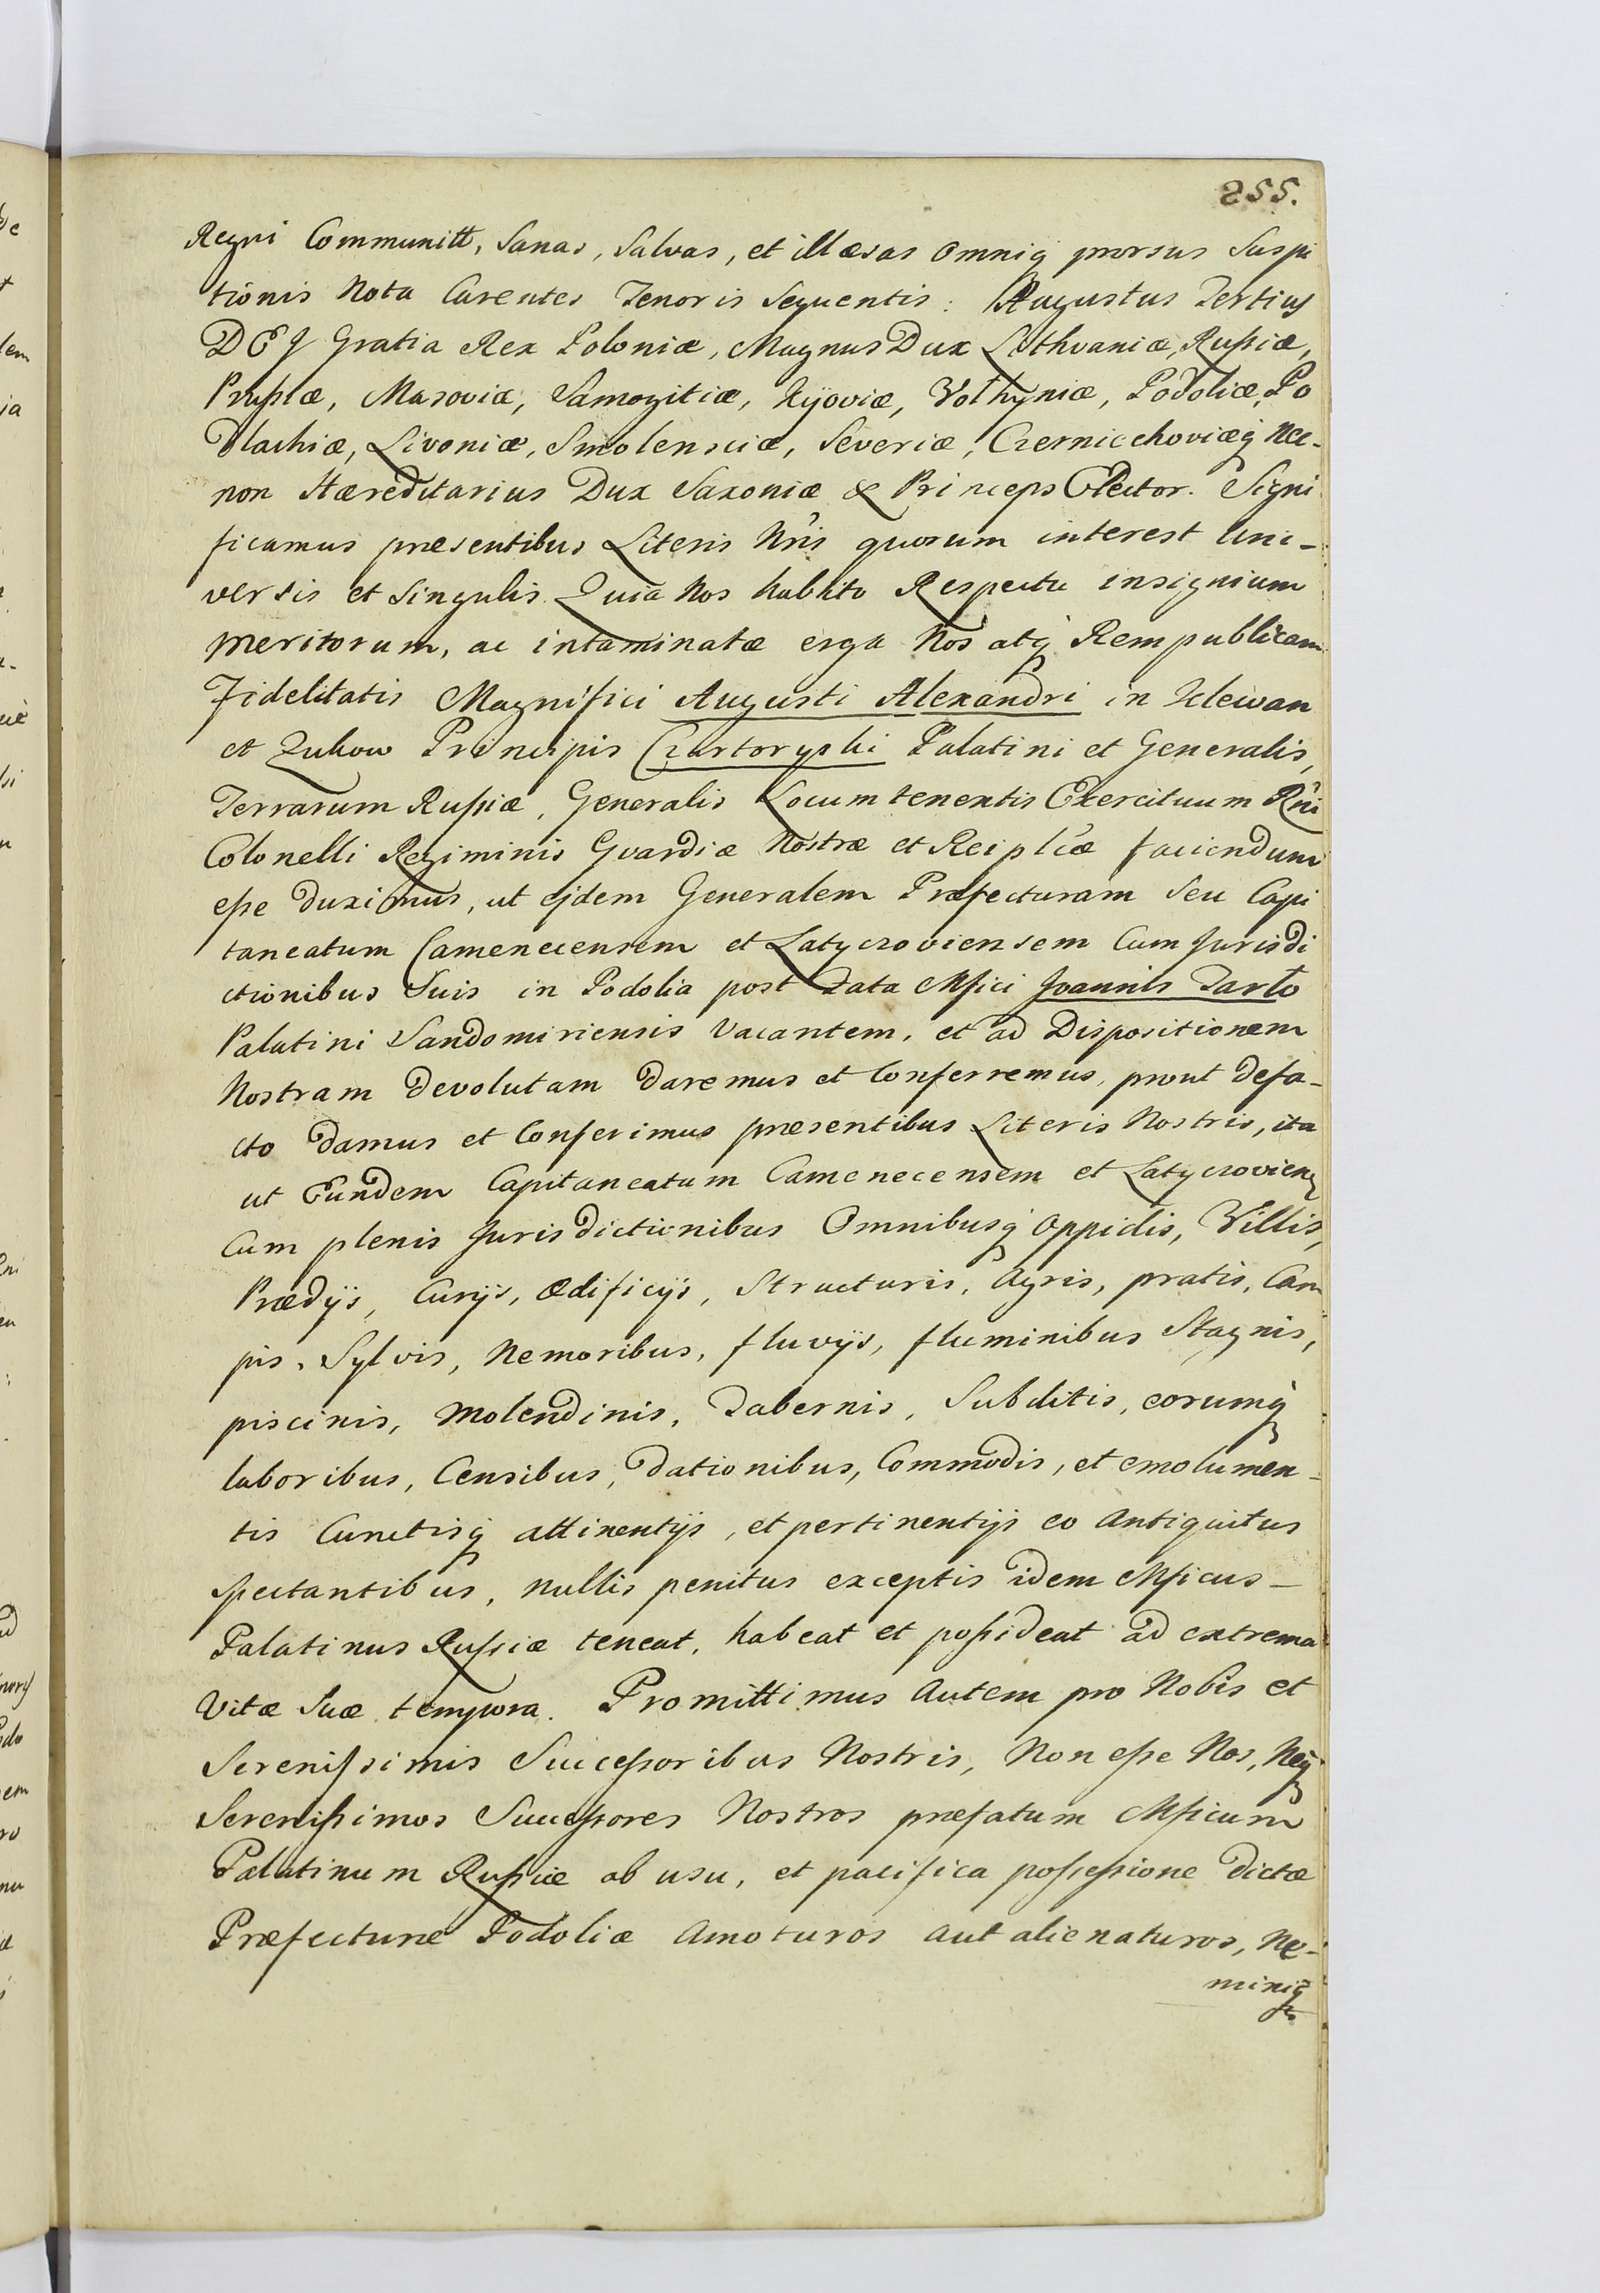 855.
Regni Communitt, Sanas, Salvas, et illæsas omniq prorsus Suspi
tionis Nota Carentes Tenoris Sequentis: Augustus Tertius
DEJ Gratia Rex Poloniæ, Magnus Dux Lithvaniæ, Rußiæ,
Prußiæ, Masoviæ, Samogitiæ, Kijoviæ, Volhyniæ, Podoliæ, Po
dlachiæ, Livoniæ, Smolensciæ, Severiæ, Czerniechoviæq Nec-
non Hæreditarius Dux Saxoniæ & Princeps Elector. Signi
ficamus præsentibus Literis Nris quorum interest Uni-
versis et Singulis Quia Nos habito Respectu insignium
meritorum, ac intaminatæ erga Nos atq Rempublicam
Fidelitatis Magnifici Augusti Alexandri in Klewan
et Zukow Principis Czartoryski Palatini et Generalis,
Terrarum Rußiæ, Generalis Locumtenentis Exercituum Rni
Colonelli Regiminis Gvardiæ Nostræ et Reiplcæ faciendum
eße duximus, ut ejdem Generalem Præfecturam Seu Capi
taneatum Camenecensem et Latyczoviensem Cum Jurisdi
ctionibus Suis in Podolia post Fata Mfici Joannis Tarło
Palatini Sandomiriensis Vacantem, et ad Dispositionem
Nostram devolutam daremus et Conferremus, prout defa-
cto damus et Conferimus præsentibus Literis Nostris, ita
ut Eundem Capitaneatum Camenecensem et Latyczovien
Cum plenis Jurisdictionibus Omnibusq Oppidis, Villis,
Prædijs, Curijs, Ædificijs, Structuris, Agris, pratis, Cam
pis, Sylvis, Nemoribus, fluvijs, fluminibus Stagnis,
piscinis, Molendinis, Tabernis, Subditis, eorumq
laboribus, Censibus, Dationibus, Commodis, et emolumen-
tis Cunctisq attinentijs, et pertinentijs eo Antiquitus
spectantibus, nullis penitus exceptis idem Mficus-
Palatinus Rußiæ teneat, habeat et poßideat ad extrema
Vitæ Suæ tempora. Promittimus Autem pro Nobis et
Serenißimis Succeßoribus Nostris, Non eße Nos, Neq
Serenißimos Succeßores Nostros præfatum Mficum
Palatinum Rußiæ ab usu, et pacifica poßeßione dictæ
Præfecturæ Podoliæ Amoturos aut alienaturos, Ne-
miniq